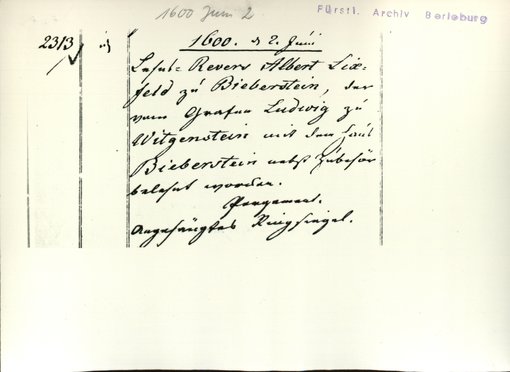 1600 Juni 2
Fürstl. Archiv Berleburg
2313
1600. d 2. Juni
Lehns-Revers Albert Lix-
feld zu Bieberstein, der
vom Grafen Ludwig zu
Witgenstein mit dem Haus
Bieberstein nebst Zubehör
belehnt worden.
Pergament.
Angehängtes Ringsiegel.